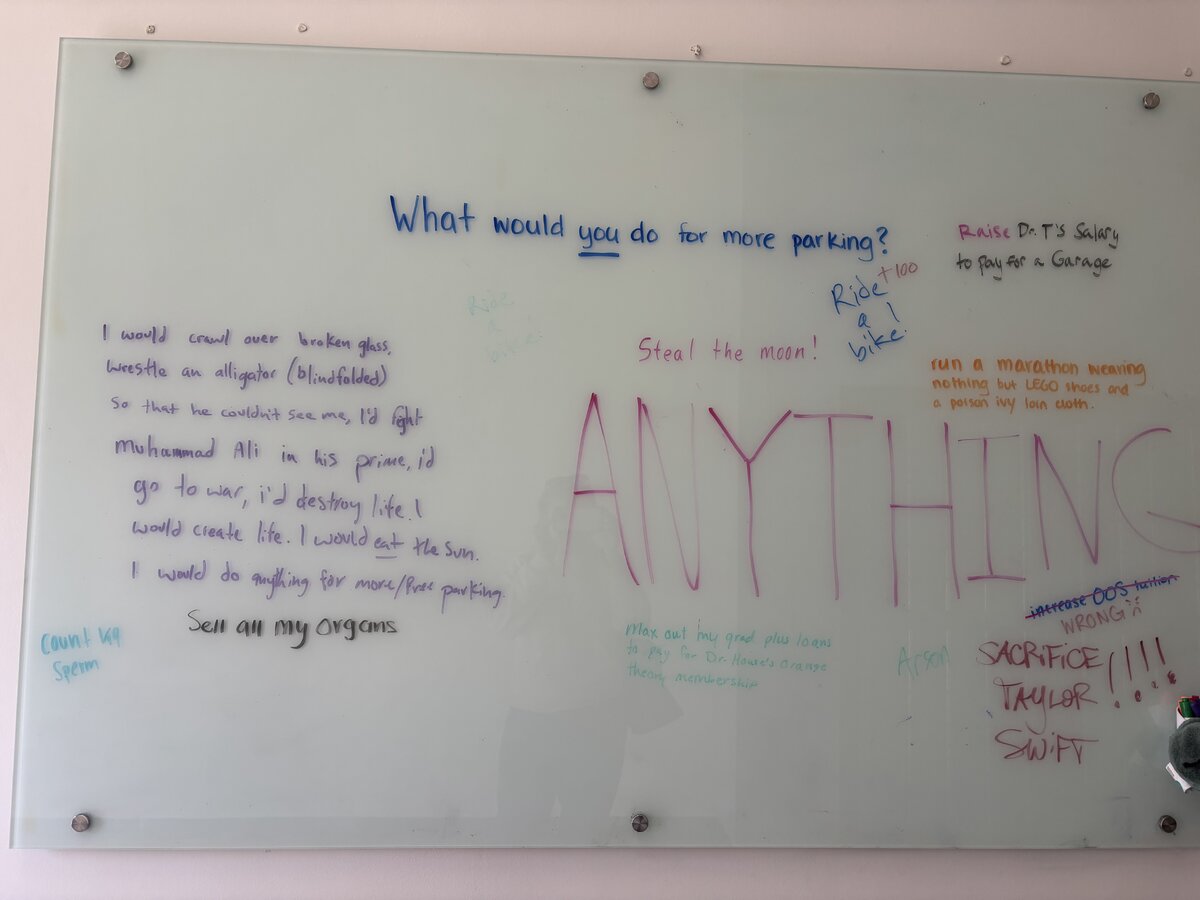 What would you do for more parking?
Raise Dr. T's Salary
to pay for a Garage
Ride +100
a
bike!
Ride
a
bike!
Steal the moon!
run a marathon wearing
nothing but LEGO shoes and
a poison ivy loin cloth.
I would crawl over broken glass,
wrestle an alligator (blindfolded)
so that he couldn't see me, I'd fight
muhammad Ali in his prime, i'd
go to war, i'd destroy life. I
would create life. I would eat the sun.
I would do anything for more/free parking.
Sell all my organs
ANYTHING
increase OOS tuition
WRONG
Count K9
Sperm
Max out my grad plus loans
to pay for Dr. House's orange
theory membership
Arson
SACRIFICE !!!!
TAYLOR
SWIFT